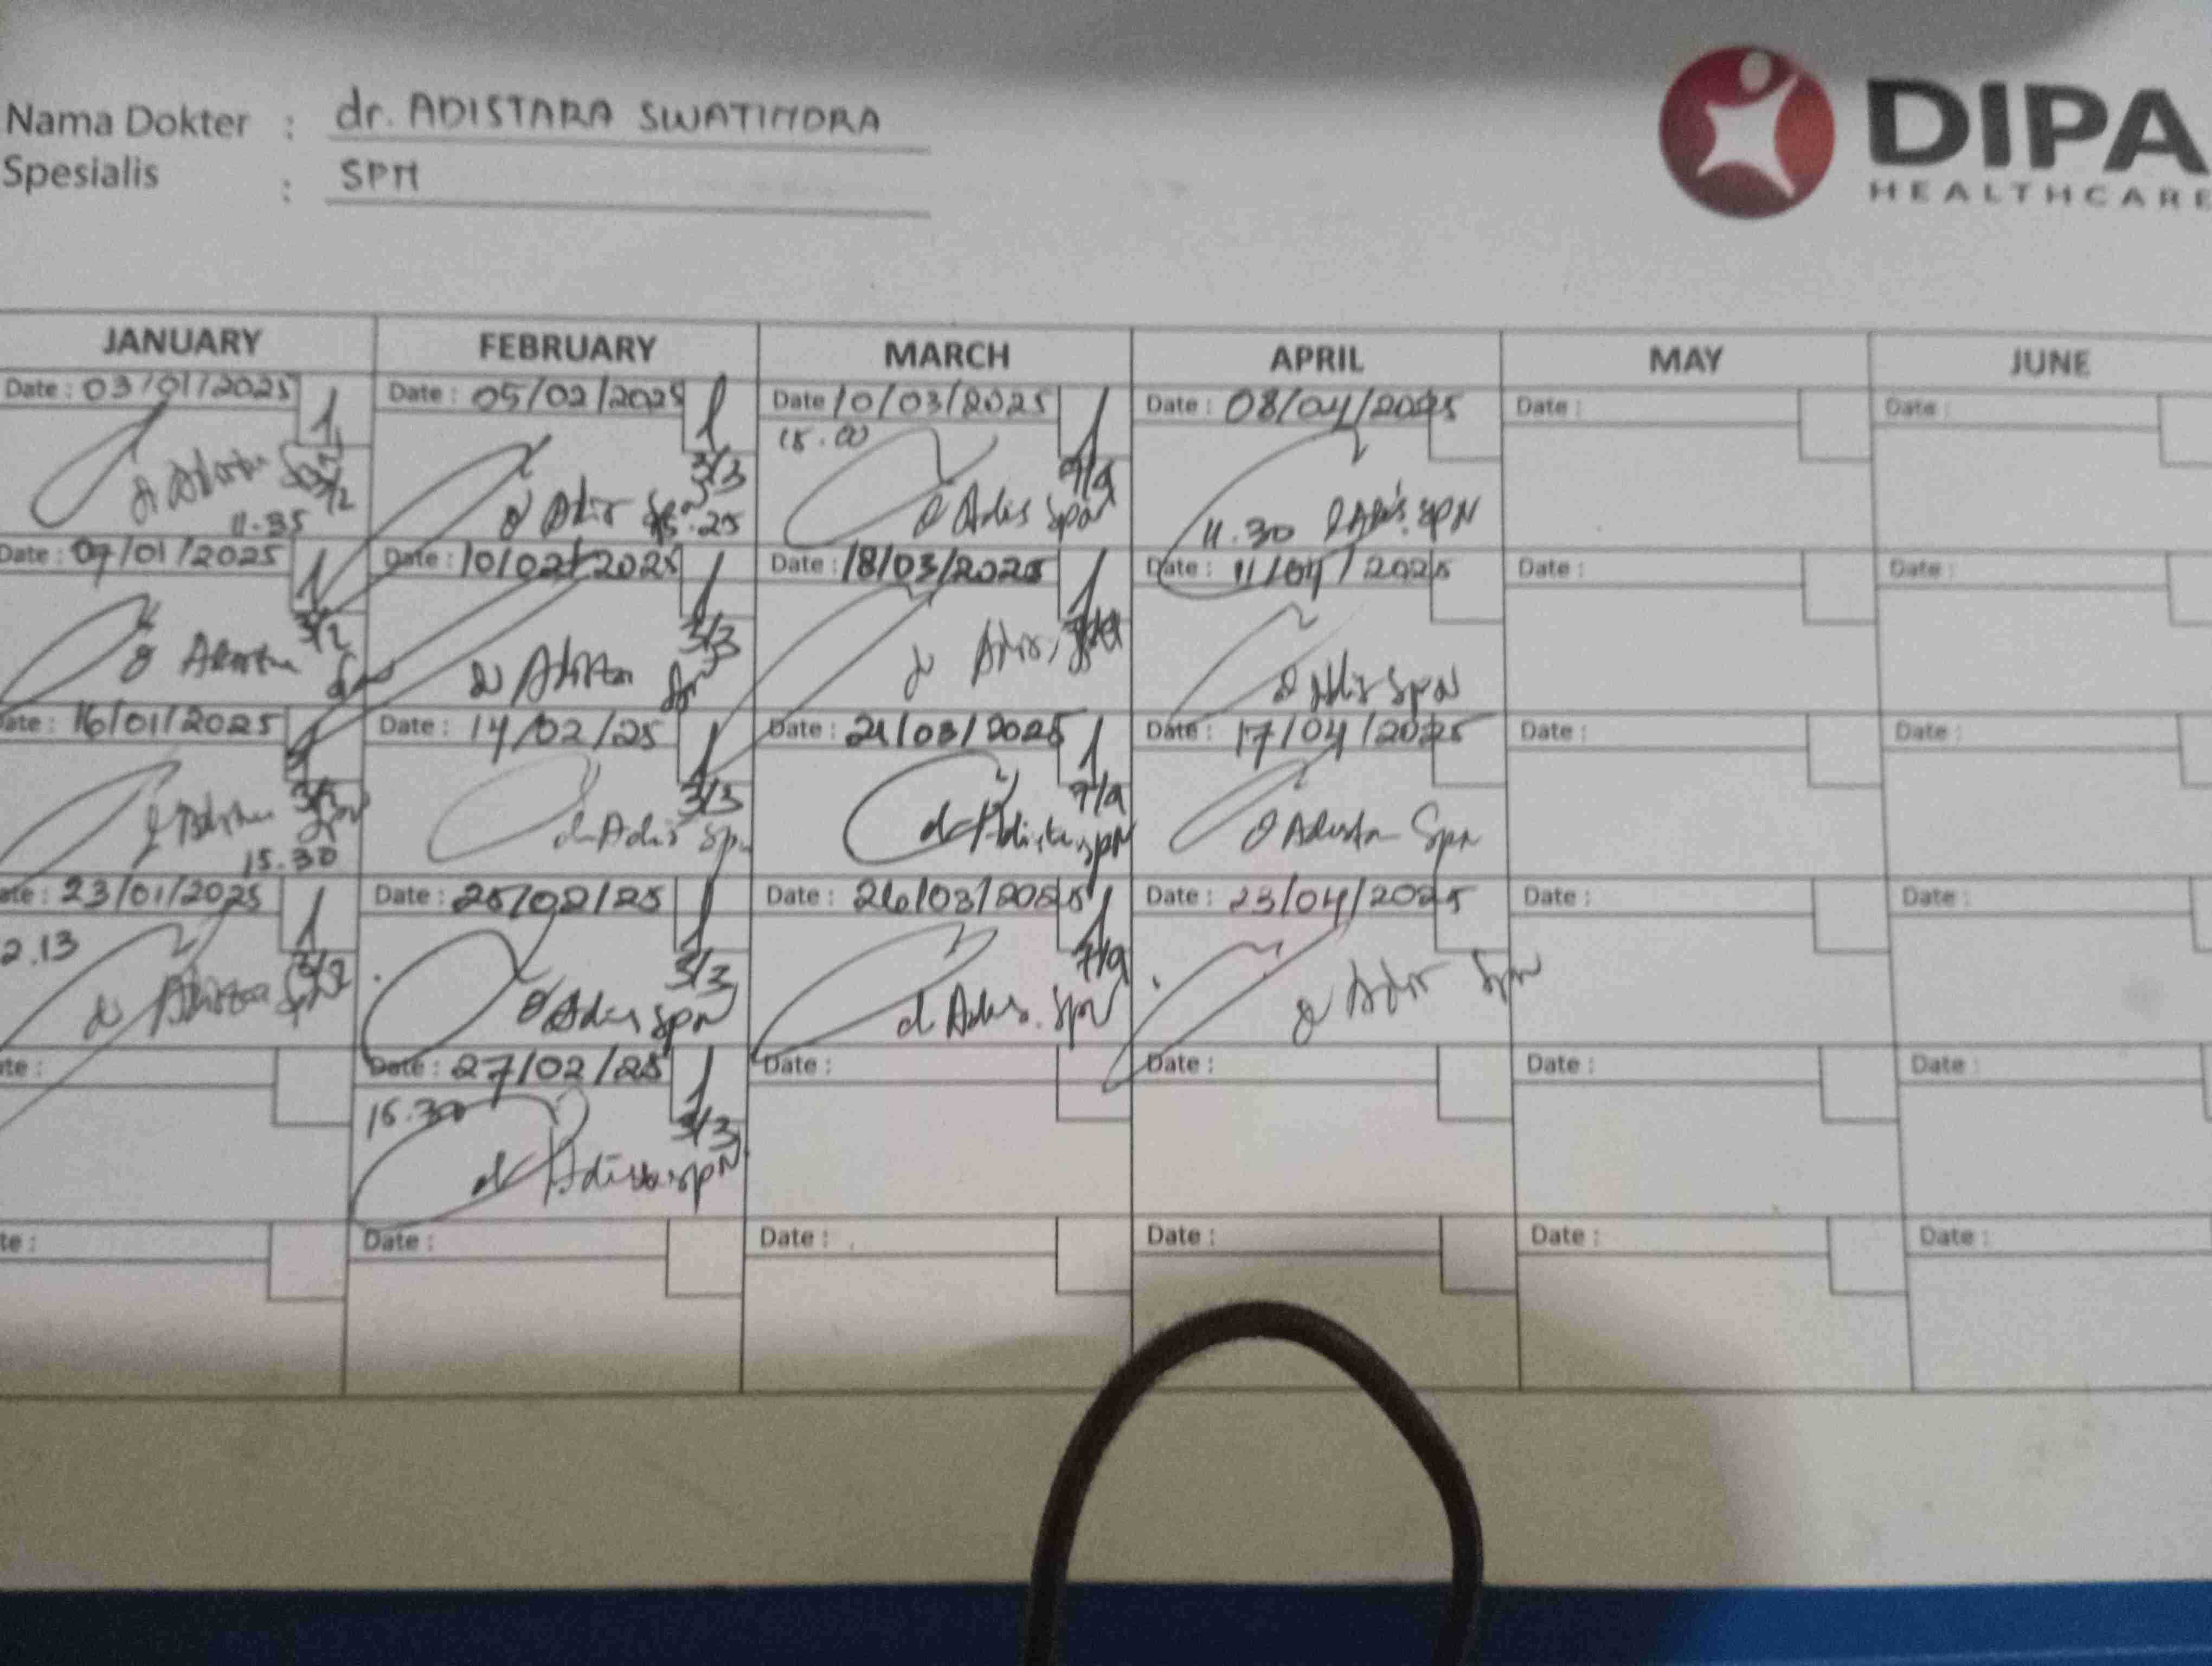 Nama Dokter : dr. ADISTARA SWATINDRA
Spesialis : SPN
DIPA
HEALTHCARE
JANUARY FEBRUARY MARCH APRIL MAY JUNE
Date : 03/01/2025 Date : 05/02/2025 Date 10/03/2025 Date : 08/04/2025 Date : Date :
15.00
3/2 3/3 7/4
dr Adis SpN dr Adis SpN dr Adis SpN
11.35 11.30
Date : 07/01/2025 Date : 10/02/2025 Date : 18/03/2025 Date : 11/04/2025 Date : Date :
3/2 3/3
dr Adista dr Adis dr Adis SpN
ate : 16/01/2025 Date : 14/02/25 Date : 21/03/2025 Date : 17/04/2025 Date : Date :
3/3 7/4
dr Adis SpN dr Adista SpN dr Adista SpN
15.30
ate : 23/01/2025 Date : 25/02/25 Date : 26/03/2025 Date : 23/04/2025 Date : Date :
2.13
3/2 3/3 7/4
dr Adista SpN dr Adis SpN dr Adis SpN dr Adis SpN
te : Date : 27/02/25 Date : Date : Date : Date :
15.30
3/3
dr Adista SpN
te : Date : Date : Date : Date : Date :